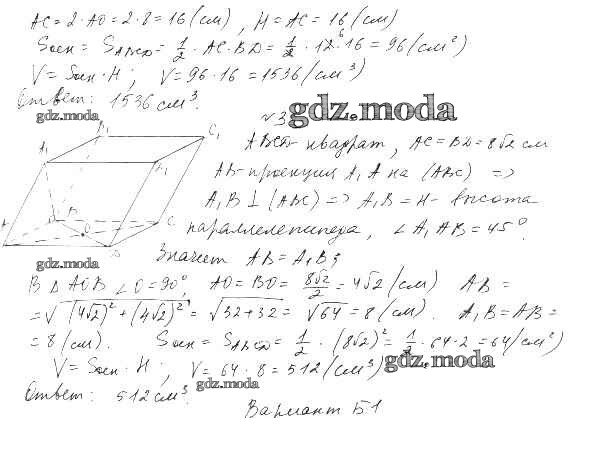 AC = 2 · AO = 2 · 8 = 16 (см), H = AC = 16 (см)
Sосн = SABCD = 1/2 · AC · BD = 1/2 · 12 · 16 = 96 (см²)
6
V = Sосн · H; V = 96 · 16 = 1536 (см³)
Ответ: 1536 см³.
gdz.moda
№3
gdz.moda
B₁ C₁
A₁ D₁
A B C
O
D
ABCD - квадрат, AC = BD = 8√2 см
AB - проекция A₁A на (ABC) =>
A₁B ⊥ (ABC) => A₁B = H - высота
параллелепипеда, ∠A₁AB = 45°.
gdz.moda
Значит AB = A₁B;
В ΔAOB ∠O = 90°, AO = BO = 8√2/2 = 4√2 (см) AB =
= √((4√2)² + (4√2)²) = √(32 + 32) = √64 = 8 (см). A₁B = AB =
= 8 (см). Sосн = SABCD = 1/2 · (8√2)² = 1/2 · 64 · 2 = 64 (см²)
V = Sосн · H; V = 64 · 8 = 512 (см³)
gdz.moda
gdz.moda
Ответ: 512 см³.
Вариант Б1